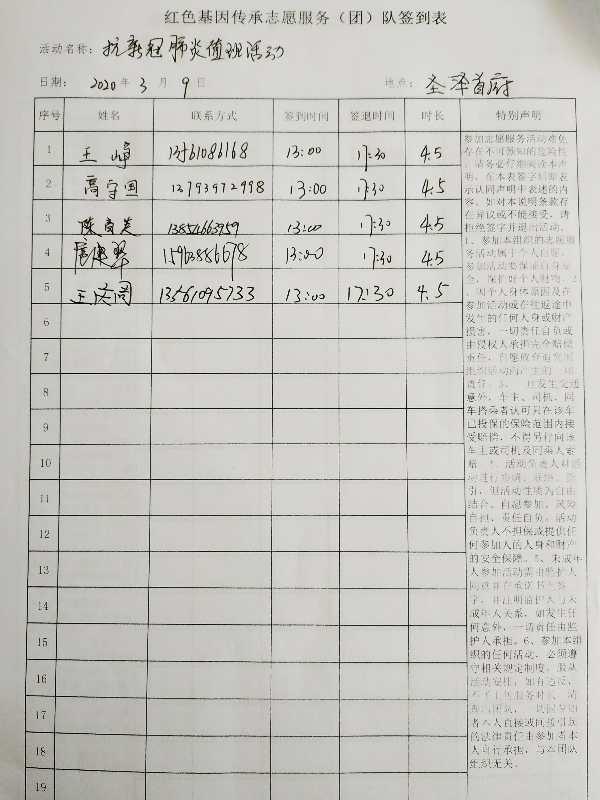 红色基因传承志愿服务（团）队签到表
活动名称：抗新冠肺炎值班活动
日期： 2020年 3 月 9 日 地点： 圣泽首府
序号 姓名 联系方式 签到时间 签退时间 时长 特别声明
1 王 13561086168 13:00 17:30 4.5
2 高守国 13793972998 13:00 17:30 4.5
3 13:00 17:30 4.5
4 15963886678 13:00 17:30 4.5
5 王 13561095733 13:00 17:30 4.5
6
7
8
9
10
11
12
13
14
15
16
17
18
19
参加志愿服务活动难免
存在不可预知的危险性，
请务必仔细阅读本声
明，在本表签字后即表
示认同声明中表述的内
容。如对本说明条款存
在异议或不能接受，请
拒绝签字并退出活动。
1、参加本组织的志愿服
务活动属于个人自愿，
参加活动要保证自身安
全，保护好个人财物。2、
因个人身体原因及在
参加活动或在往返途中
发生的任何人身或财产
损害，一切责任自负或
由侵权人承担完全赔偿
责任，
意外，车主、司机、同
车搭乘者认可只在该车
已投保的保险范围内接
受赔偿，不得另行向该
车主或司机及同乘人索
赔。4、活动负责人对活
引，但活动性质为自由
结合，自愿参加，风险
自担，责任自负。活动
负责人不担保或提供任
何参加人的人身和财产
的安全保障。5、未成年
人参加活动需由监护人
字，并注明监护人与未
成年人关系，如发生任
何意外，一切责任由监
护人承担。6、参加本组
织的任何活动，必须遵
守相关规定制度，服从
活动安排，如有违反，
者本人直接或间接引起
的法律责任由参加者本
人自行承担，与本团队
组织无关。